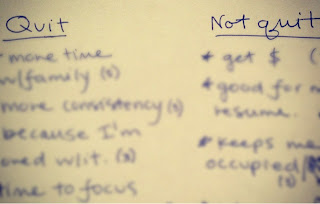 Quit
more time
w/family (s)
more consistency (s)
because I'm
w/it. (s)
time to focus
Not quit
* get $ (
* good for
resume.
* keeps me
occupied/
(s)